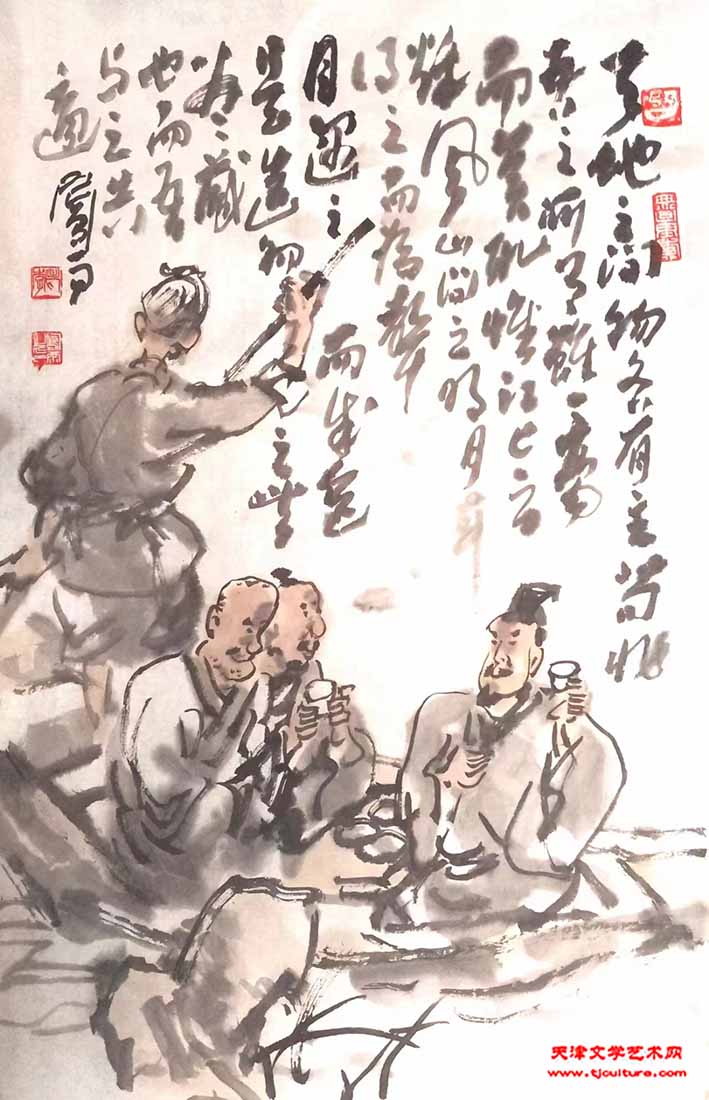 天地之间物各有主苟非
吾之所有虽一毫
而莫取惟江上之
清风山间之明月耳
得之而为声
目遇之而成色
是造物者之無
尽藏
也而吾
与之共
適
天津文学艺术网
www.tjculture.com